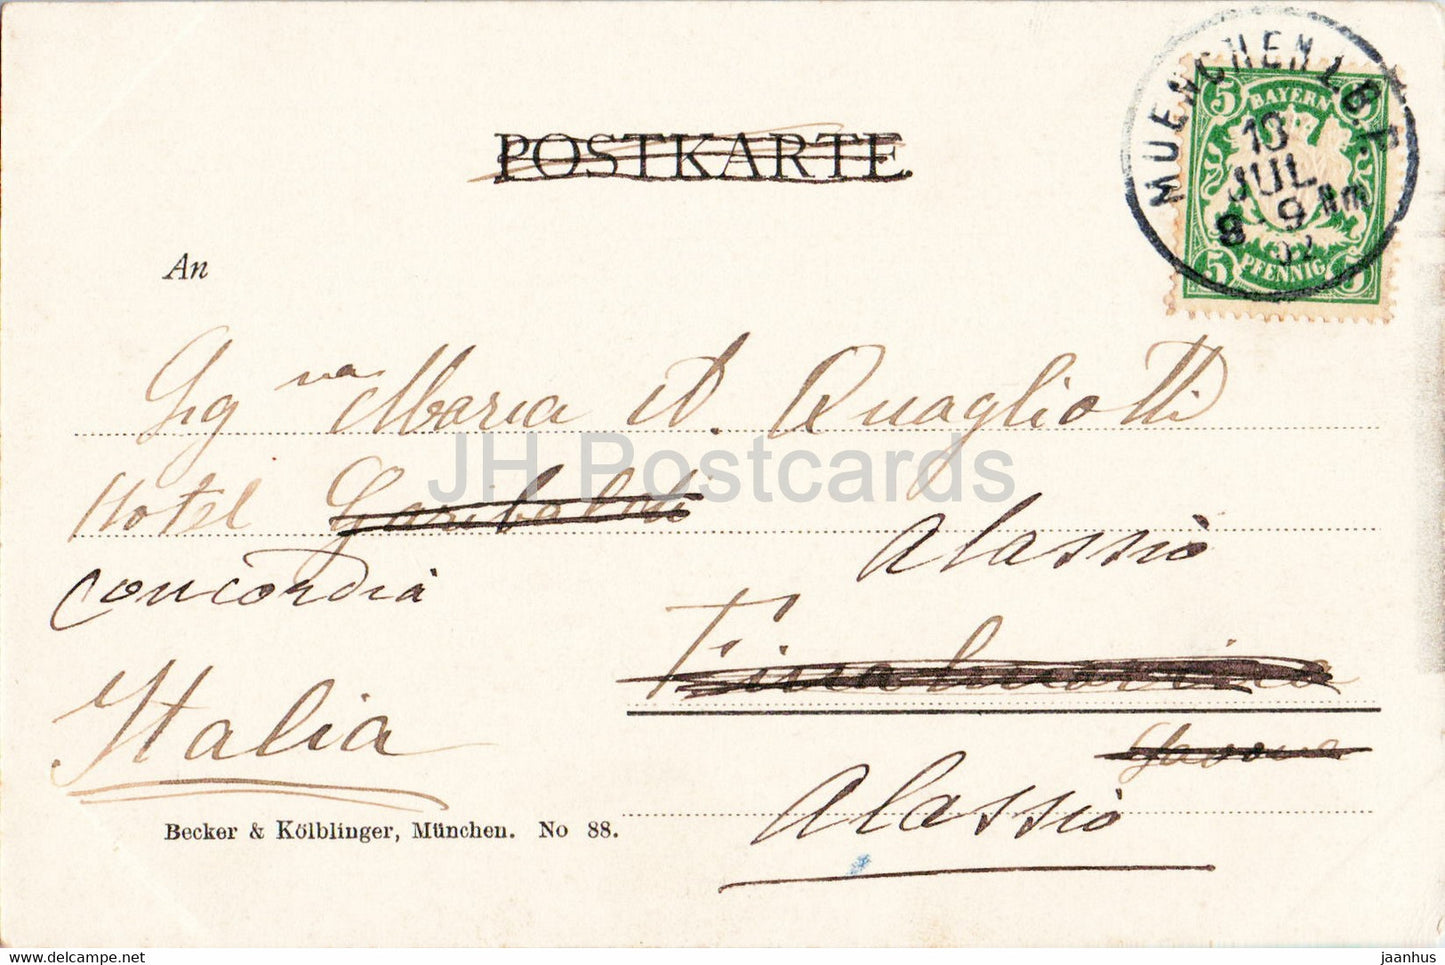 MUENCHEN 2 B.P.
5 BAYERN
10
JUL
8-9 Nm
02
5 PFENNIG 5
POSTKARTE
An
Sig na Maria A. Quagliotti
Hotel Garibaldi
Alassio
Concordia
Finalmarina
Italia
Savona
Alassio
Becker & Kölblinger, München. No 88.
JH Postcards
https://www.delcampe.net
jaanhus